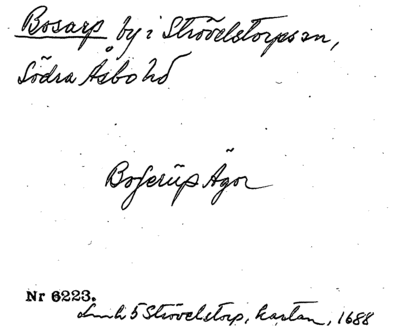 Bosarp by i Strövelstorps sn,
Södra Åsbo hd
Boserüp Ägor
Nr 6223.
5 Strövelstorp, kartan, 1688